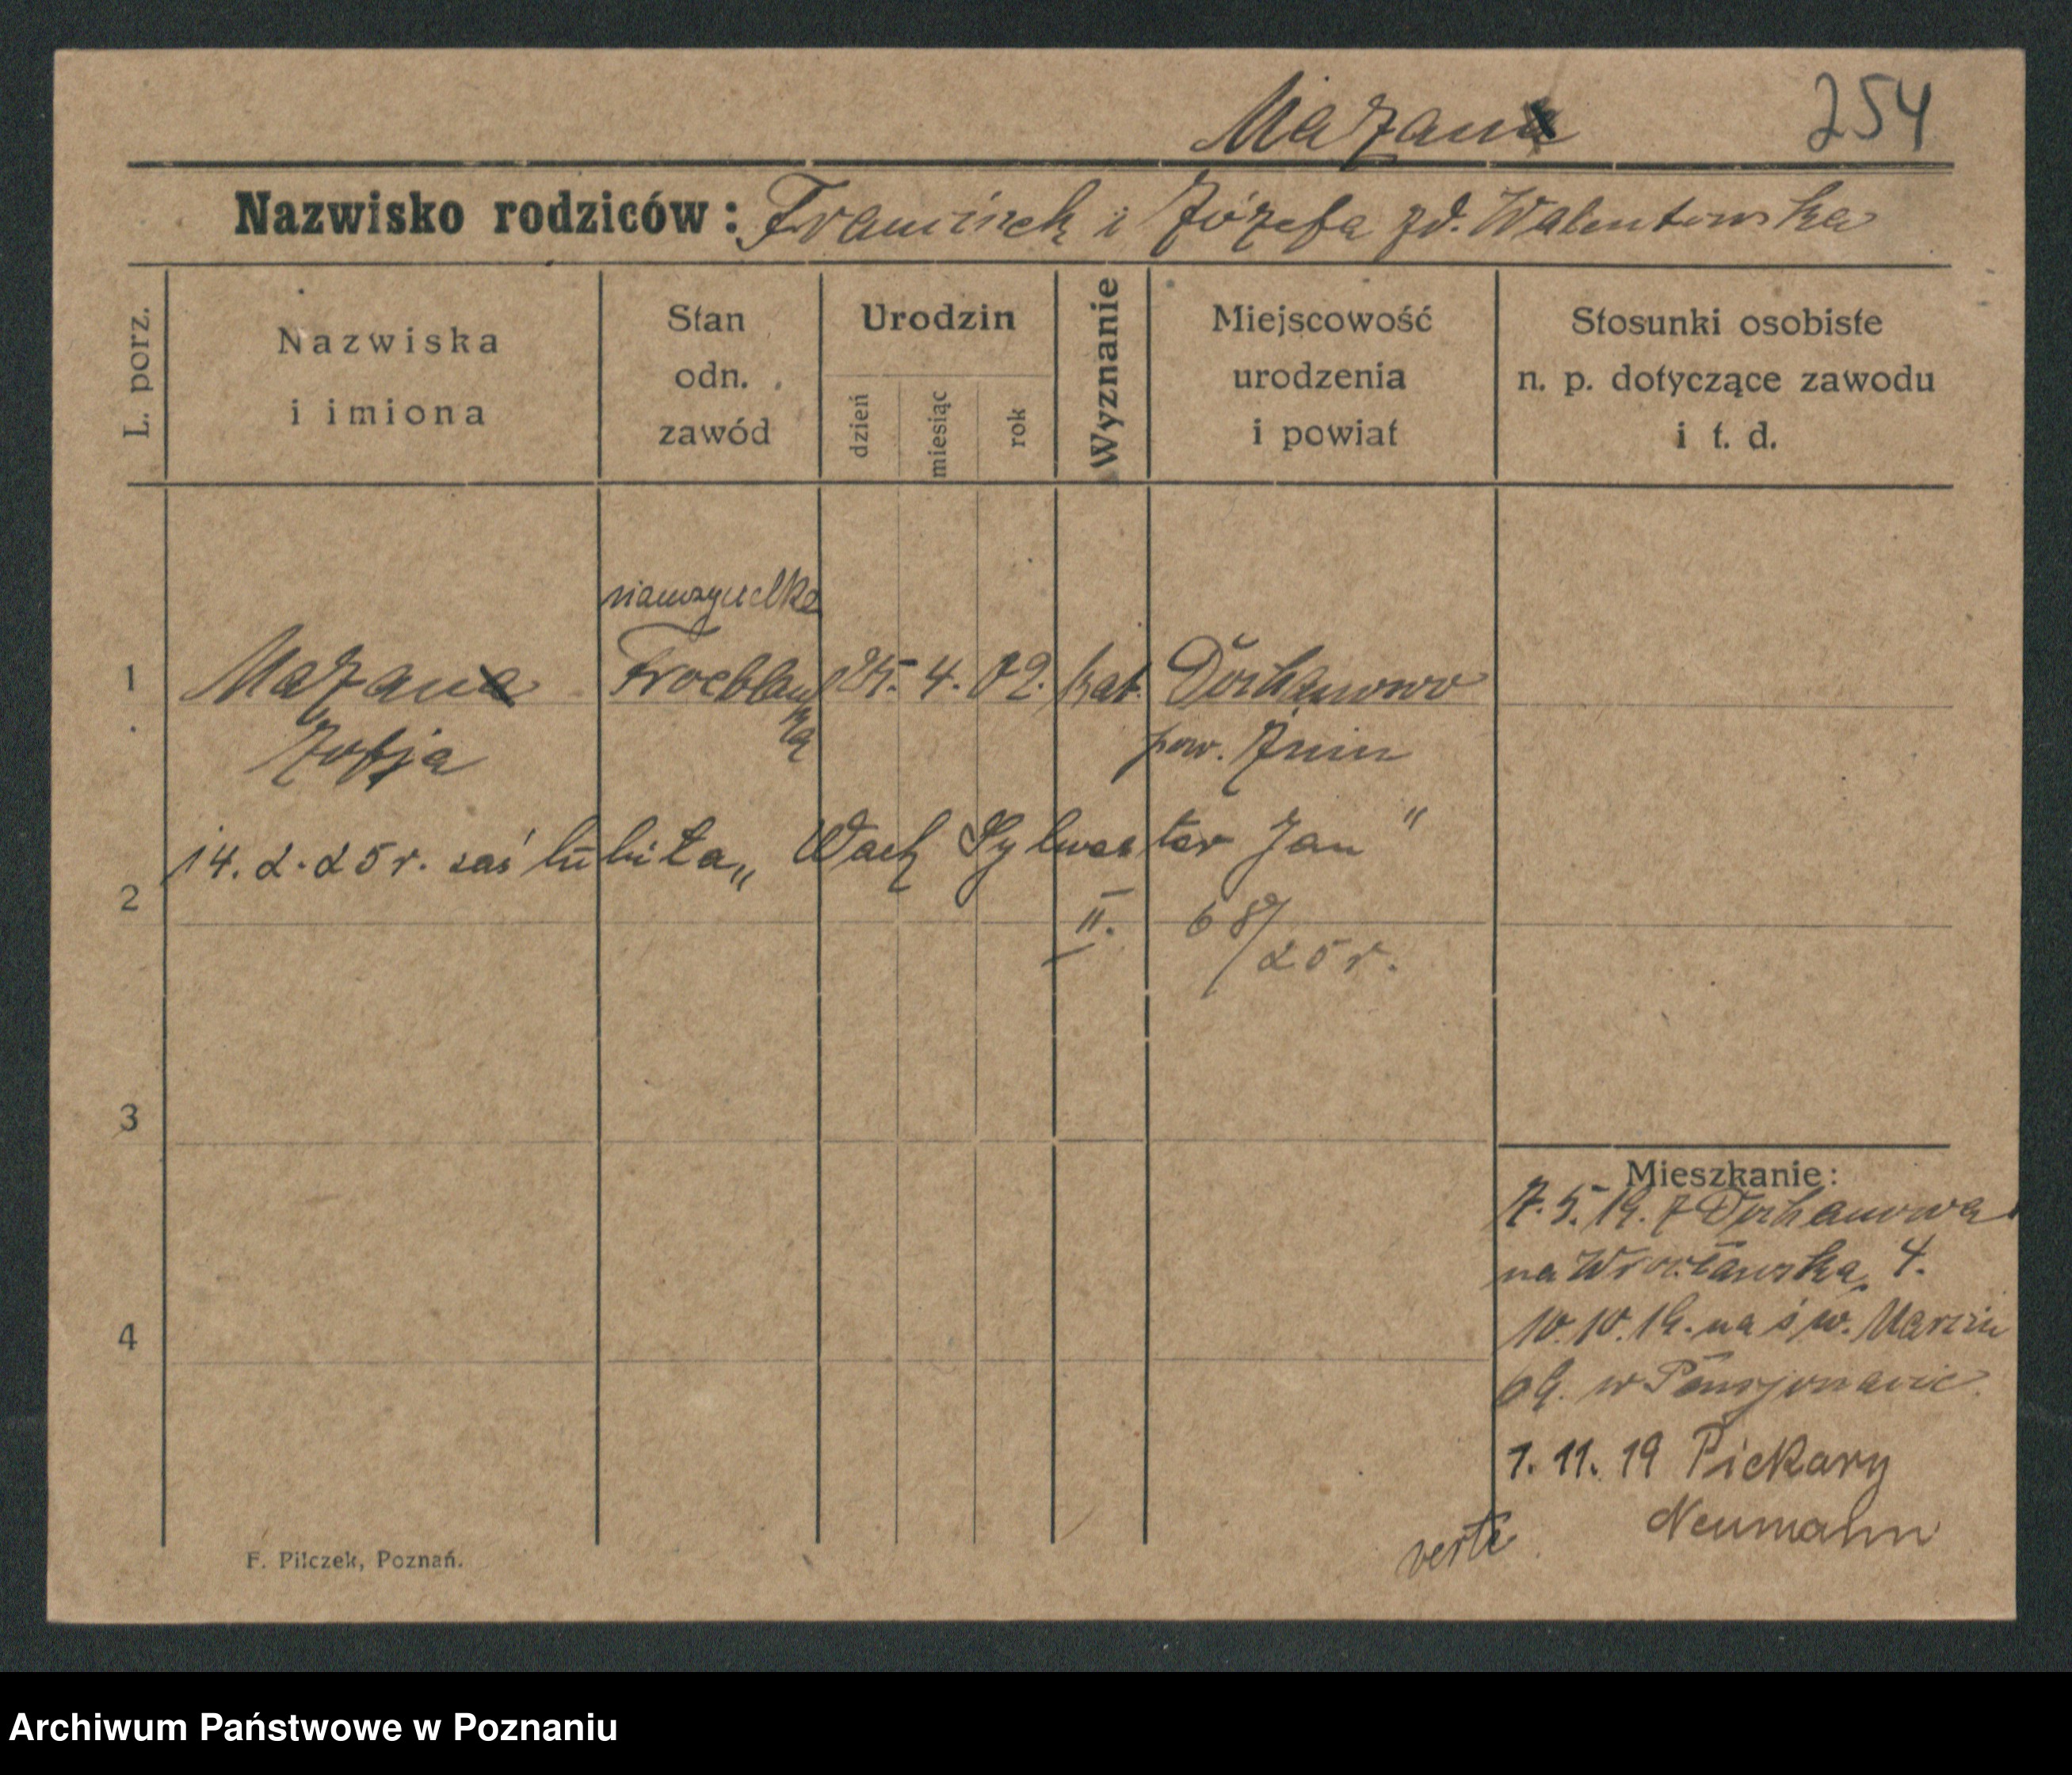 Mazana 254
Nazwisko rodziców: Franciszek i Józefa zd. Walentowska
L. porz.
Nazwiska
i imiona
Stan
odn.
zawód
Urodzin
dzień
miesiąc
rok
Wyznanie
Miejscowość
urodzenia
i powiat
Stosunki osobiste
n. p. dotyczące zawodu
i t. d.
nauczycielka
1 Mazana Froeblanka 25. 4. 02. kat. Dochanowo
Zofja pow. Żnin
14. 2. 25 r. zaślubiła „Wach Sylwester Jan"
2 II. 68/25 r.
3
4
Mieszkanie:
7. 5. 19. z Dochanowa
na Wrocławską 4.
10. 10. 19. na św. Marcin
69. w Pensjonacie.
1. 11. 19 Piekary
Neumann
verte
F. Pilczek, Poznań.
Archiwum Państwowe w Poznaniu